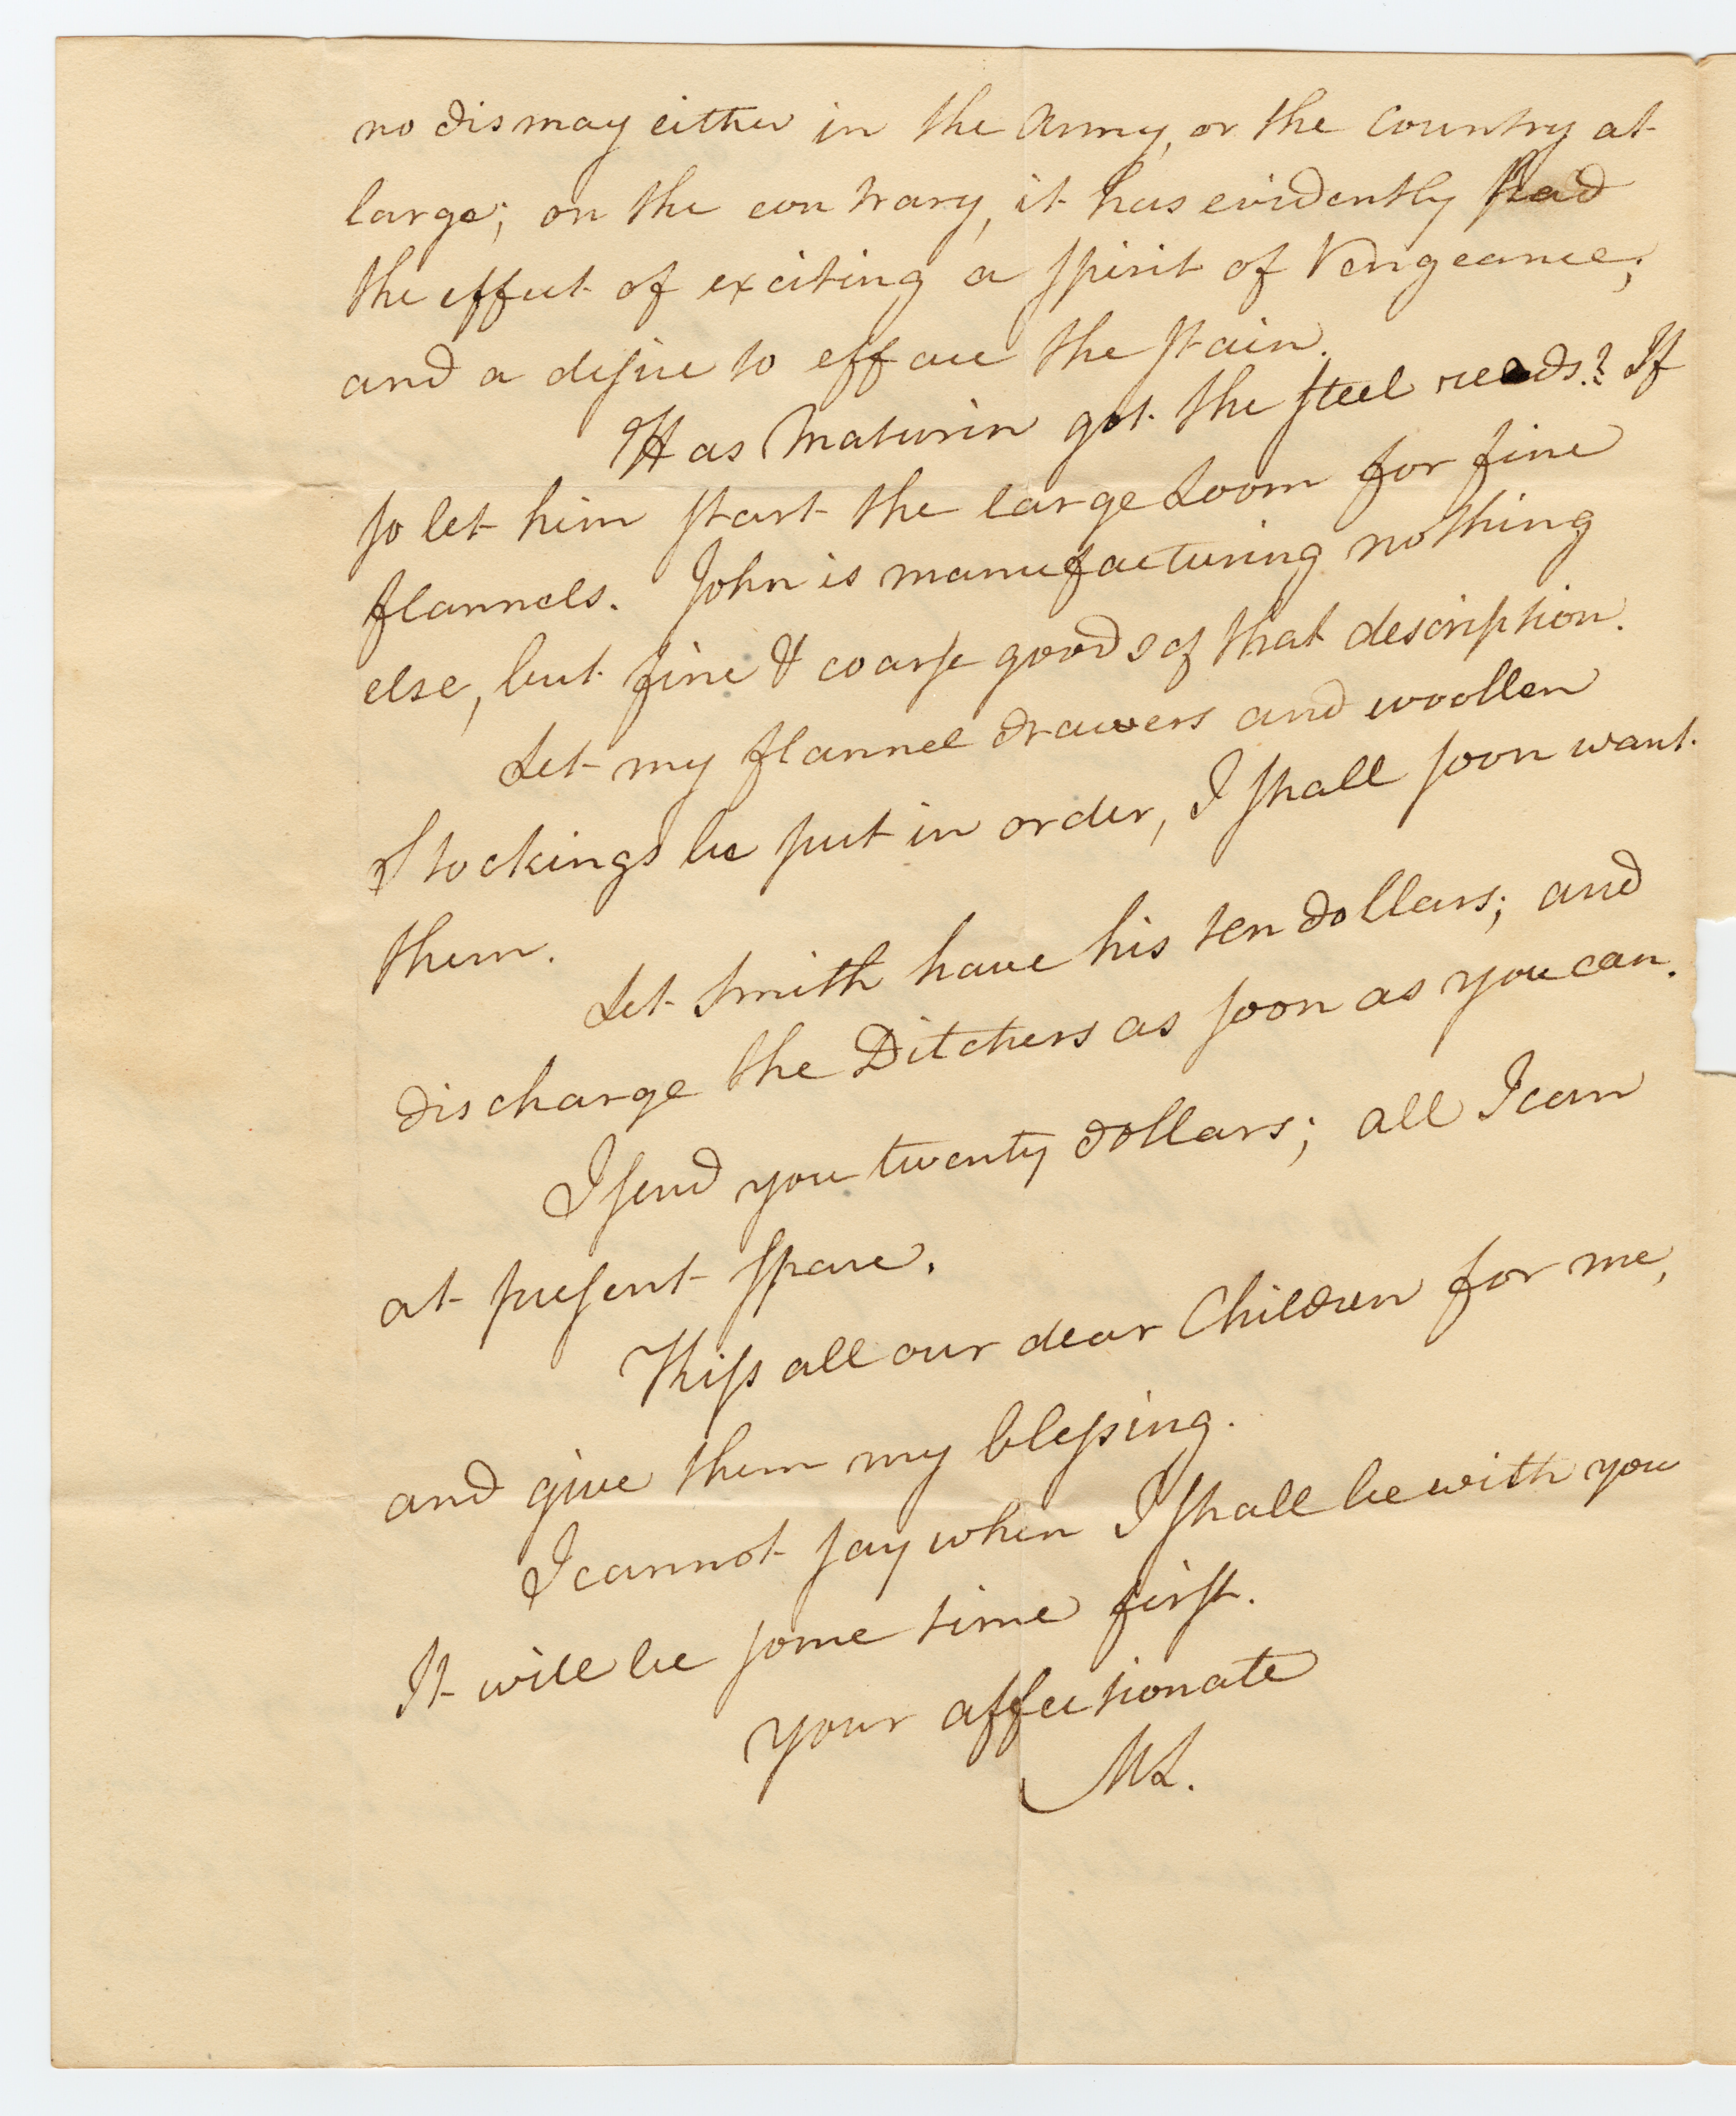 no dismay either in the Army, or the Country at
large; on the contrary, it has evidently had
the effect of exciting a spirit of Vengeance;
and a desire to efface the stain.
Has Maturin got the steel reeds? If
so let him start the large Loom for fine
flannels. John is manufacturing nothing
else, but fine & coarse goods of that description.
Let my flannel drawers and woollen
Stockings be put in order, I shall soon want
them.
Let Smith have his ten dollars; and
discharge the Ditchers as soon as you can.
I send you twenty dollars; all I can
at present spare.
Kiss all our dear Children for me,
and give them my blessing.
I cannot say when I shall be with you
It will be some time first.
your affectionate
ML.